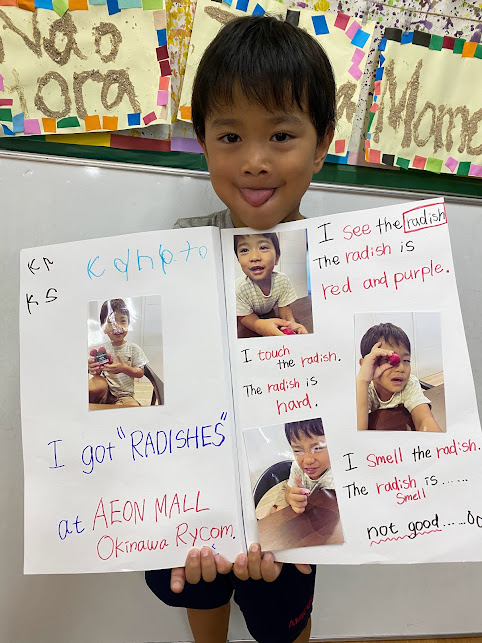 Nao
Mome
Kr
Ks
Kanpto
I got "RADISHES"
at AEON MALL
Okinawa RYCOM.
I see the radish
The radish is
red and purple.
I touch
the radish.
The radish is
hard.
I smell the radish.
The radish is......
smell
not good......